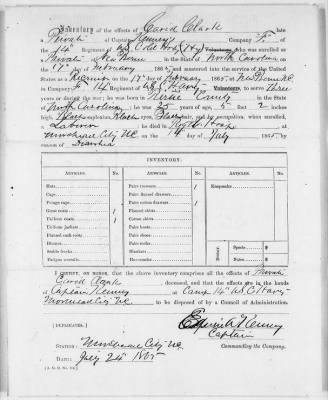 Inventory of the effects of David Clark late
a Private of Captain Kenney's Company "F"
of the 14" Regiment of U.S. Col'd Hvy Arty Volunteers, who was enrolled as
Private at New Berne in the State of North Carolina on
the 17" day of February 1865, and mustered into the service of the United
States as Recruit on the 17" day of February 1865, at New Berne N.C.
in Company F 14 Regiment U.S.C. H. Arty Volunteers, to serve Three
years or during the war; he was born in County, in the State
of North Carolina; he was 25 years of age, 5 feet 2 inches
high, Black complexion, Black eyes, Black hair, and by occupation, when enrolled,
a Laborer; he died in Hosp
at Morehead City N.C. on the 14 day of July 1865, by
reason of
INVENTORY.
Articles. No. Articles. No. Articles. No.
Hats
Caps
Forage caps
Great coats 1
Uniform coats 1
Uniform jackets
Flannel sack coats
Blouses
Stable frocks
Coveralls
Pairs trousers 1
Pairs flannel drawers
Pairs cotton drawers
Flannel shirts
Cotton shirts
Pairs boots
Pairs shoes
Pairs socks
Blankets
Haversacks
Knapsacks
Money. Specie $
Notes $
I CERTIFY, ON HONOR, that the above inventory comprises all the effects of Private
David Clark, deceased, and that the effects are in the hands
of Captain Kenney at Camp 14" U.S.C.H. Arty
Morehead City N.C. to be disposed of by a Council of Administration.
Edwin A Kenney
Captain
Commanding the Company.
[DUPLICATES.]
STATION: Morehead City N.C.
DATE: July 24" 1865